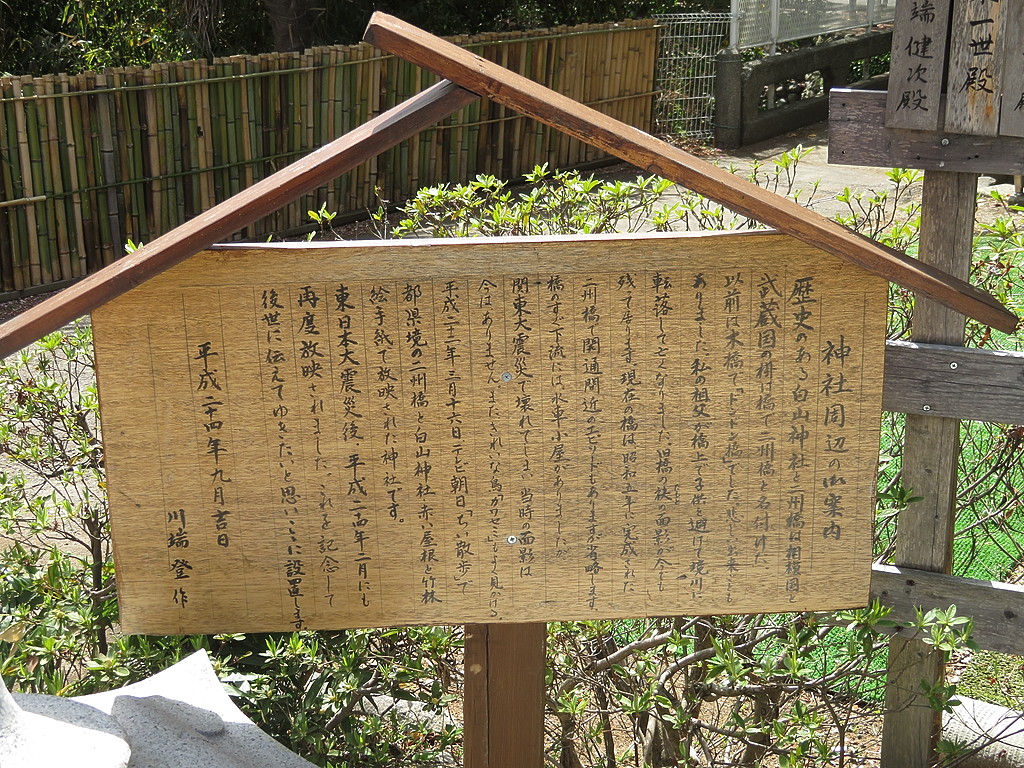 神社周辺の御案内
歴史のある白山神社と二州橋は相模国と
武蔵国の掛け橋で二州橋と名付けた
以前は木橋で、「ドンドン橋」でした。悲しい出来ごとも
ありました。私の祖父が橋上で子供を避けて境川に
転落して亡くなりました。旧橋の袂の面影が今でも
残って居ります。現在の橋は昭和三十年に完成された
二州橋で開通間近のエピソードもありますが省略します
橋のすぐ下流には水車小屋がありましたが
関東大震災で壊れてしまい当時の面影は
今はありません。またきれいな鳥「カワセミ」もよく見かける。
平成二十二年三月十六日テレビ朝日「ちい散歩」で
都県境の二州橋と白山神社、赤い屋根と竹林
絵手紙で放映された神社です。
東日本大震災後 平成二四年二月にも
再度放映されました。これを記念して
後世に伝えてゆきたいと思いここに設置します
平成二十四年九月吉日
川端 登 作
一世殿
端健次殿